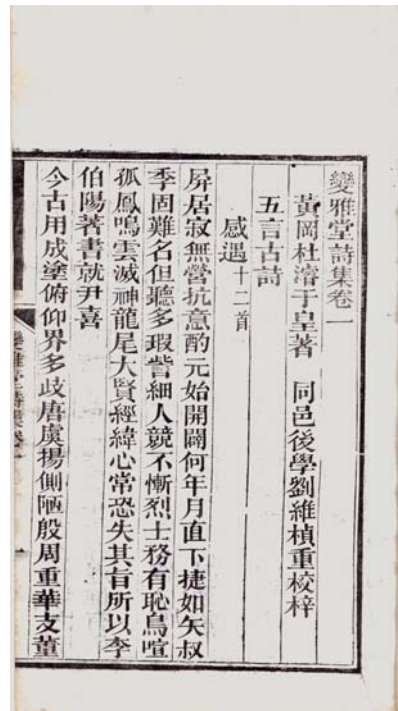 變雅堂詩集卷一
黃岡杜濬于皇著 同邑後學劉維楨重校梓
五言古詩
感遇十二首
屏居寂無營抗意酌元始開闢何年月直下捷如矢叔
季固難名但聽多瑕訾細人競不慚烈士務有恥鳥喧
孤鳳鳴雲滅神龍尾大賢經緯心常恐失其旨所以李
伯陽著書就尹喜
今古用成塗俯仰界多歧唐虞揚側陋殷周重華支董
變雅堂詩集卷一